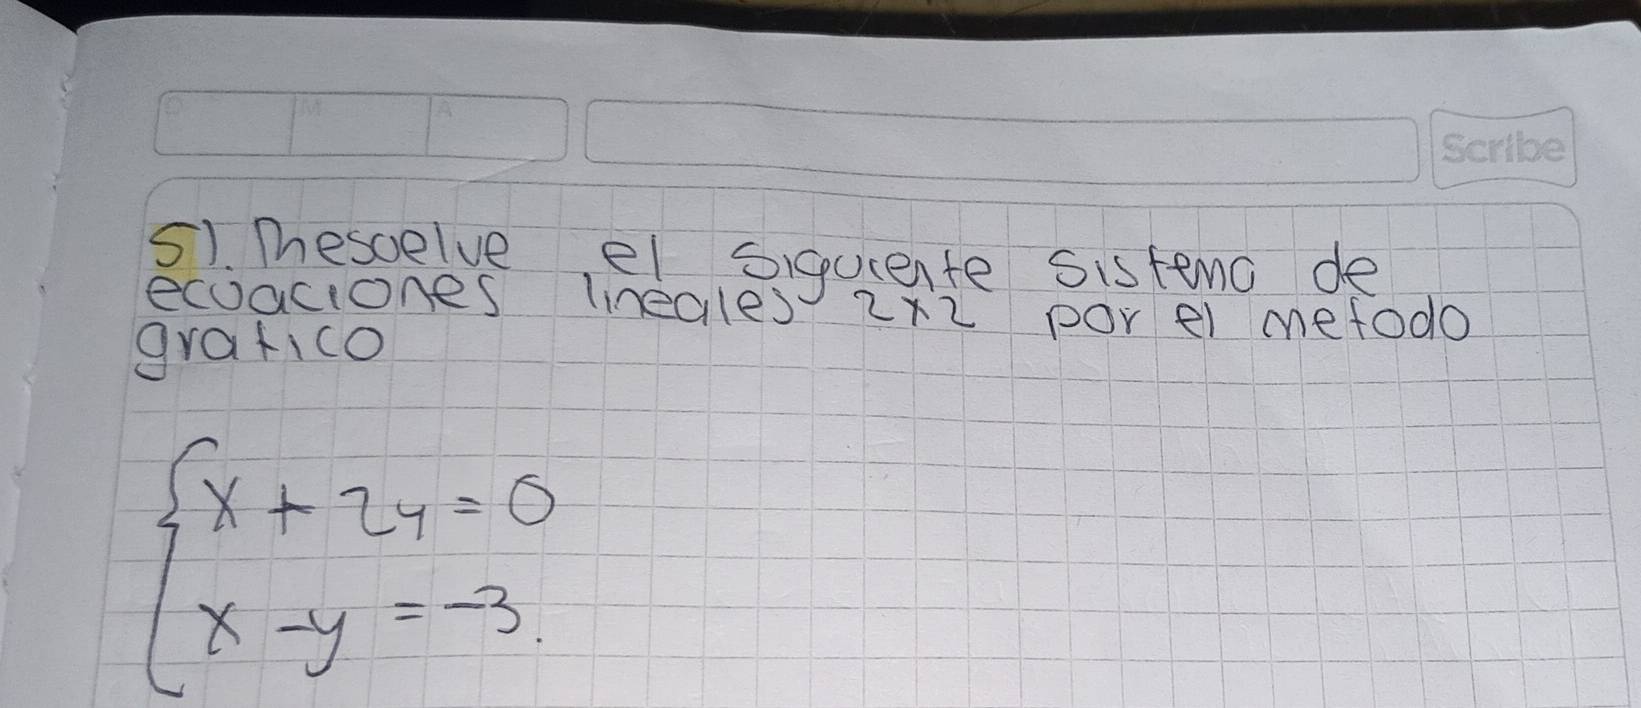 D M A
Scribe
5). Resuelve el siguiente sistema de
ecuaciones lineales 2x2 por el metodo
grafico
x + 2y = 0
x - y = -3.